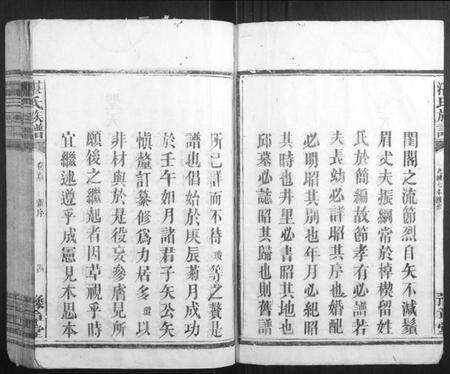 閨閣之流節烈自矢不減鬚
眉丈夫振綱常於棹楔留姓
氏於簡編故節孝有必譜若
夫長幼必詳昭其序也婚配
必明昭其別也年月必紀昭
其時也井里必書昭其地也
邱墓必誌昭其歸也則舊譜
所已詳而不待等之贅是
譜也倡始於庚辰菊月成功
於壬午如月諸君子矢公矢
慎釐訂纂修爲力居多以
非材與於是役妄參膚見所
願後之繼起者因革視乎時
宜繼述遵乎成憲見木思本
氏族譜
序
四
豫章堂